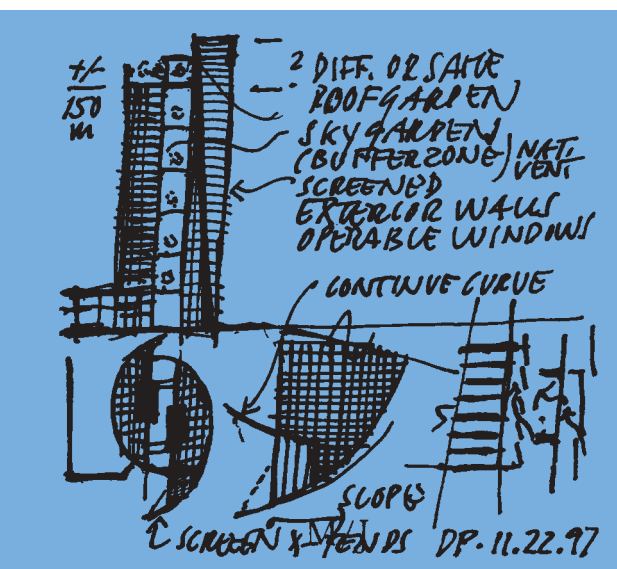 +/-
150
m
? DIFF. OR SAME
ROOFGARDEN
SKYGARDEN
(BUFFERZONE) NAT.
VENT
SCREENED
EXTERIOR WALLS
OPERABLE WINDOWS
CONTINUE CURVE
SCOPE
SCREEN
DP. 11.22.97